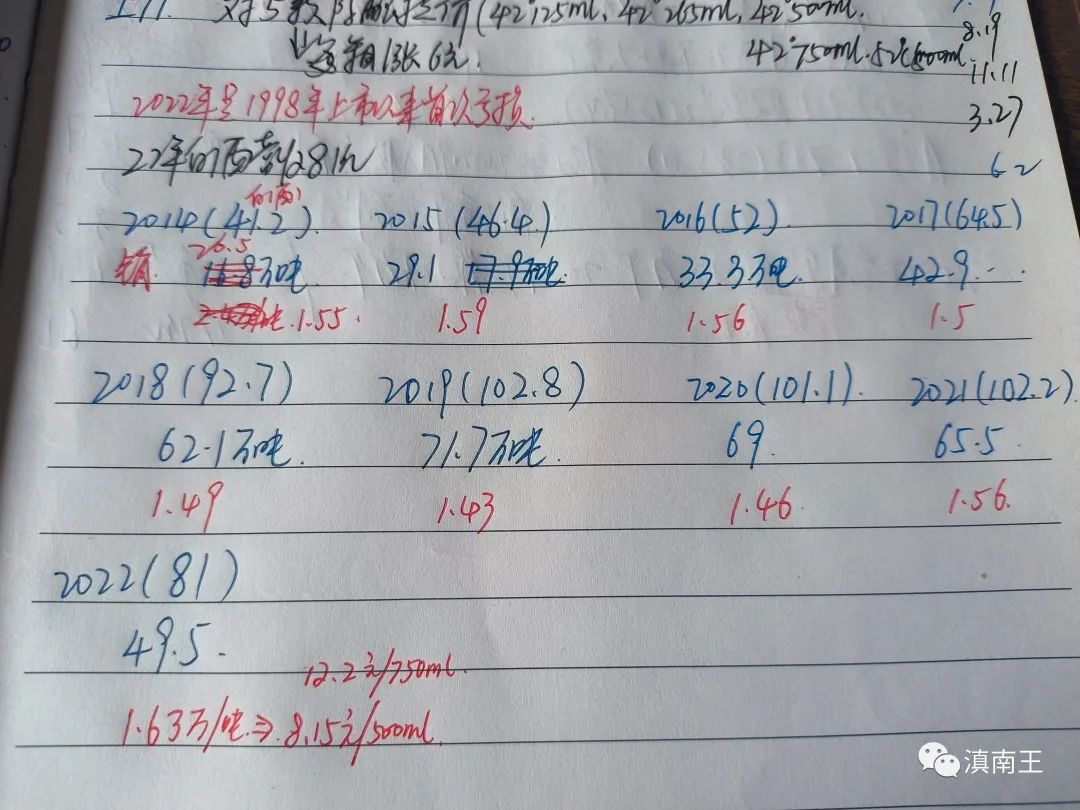 对5款陈酿 (42°125ml、42°265ml, 42°500ml. 8.19
每箱涨6元. 42°750ml. 52°500ml. 11.11
2022年是1998年上市以来首次亏损. 3.27
22年白酒 81亿 62
白酒
2014(41.2). 2015(46.4) 2016(52) 2017(64.5)
销 26.5 万吨 29.1 33.3万吨. 42.9...
1.55. 1.59 1.56 1.5
2018(92.7) 2019(102.8) 2020(101.1). 2021(102.2)
62.1万吨. 71.7万吨. 69 65.5.
1.49 1.43 1.46. 1.56.
2022(81)
49.5.
12.2元/750ml.
1.63万/吨⇒8.15元/500ml.
滇南王